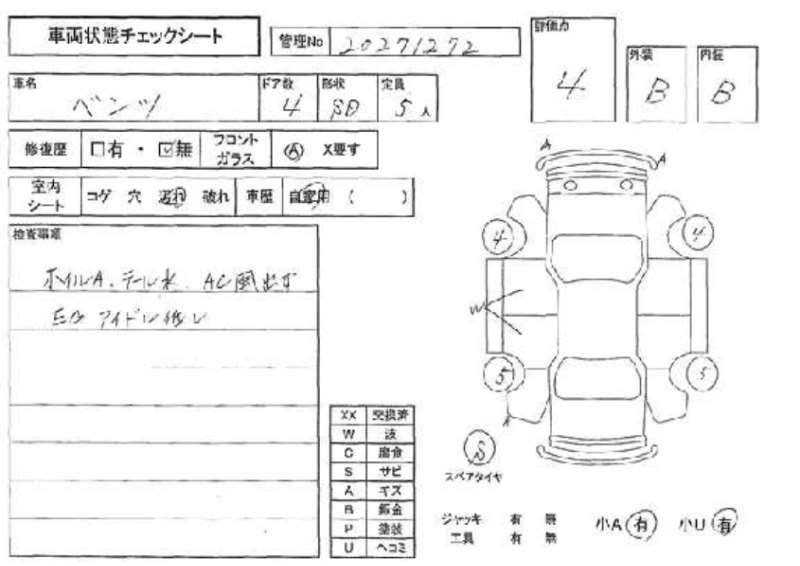 車両状態チェックシート
管理No 20271272
評価点 4
外装 B
内装 B
車名 ベンツ
ドア数 4
形状 SD
定員 5人
修復歴 □有・☑無
フロントガラス Ⓐ X要す
室内シート コゲ 穴 汚れ 破れ
車歴 自家用 ( )
検査事項
ホイルA、テール水、AC風出ず
EG アイドル低い
A
A
4
4
W
5
5
A
S
スペアタイヤ
XX 交換済
W 波
C 腐食
S サビ
A キズ
B 鈑金
P 塗装
U ヘコミ
ジャッキ 有 無
工具 有 無
小A 有
小U 有